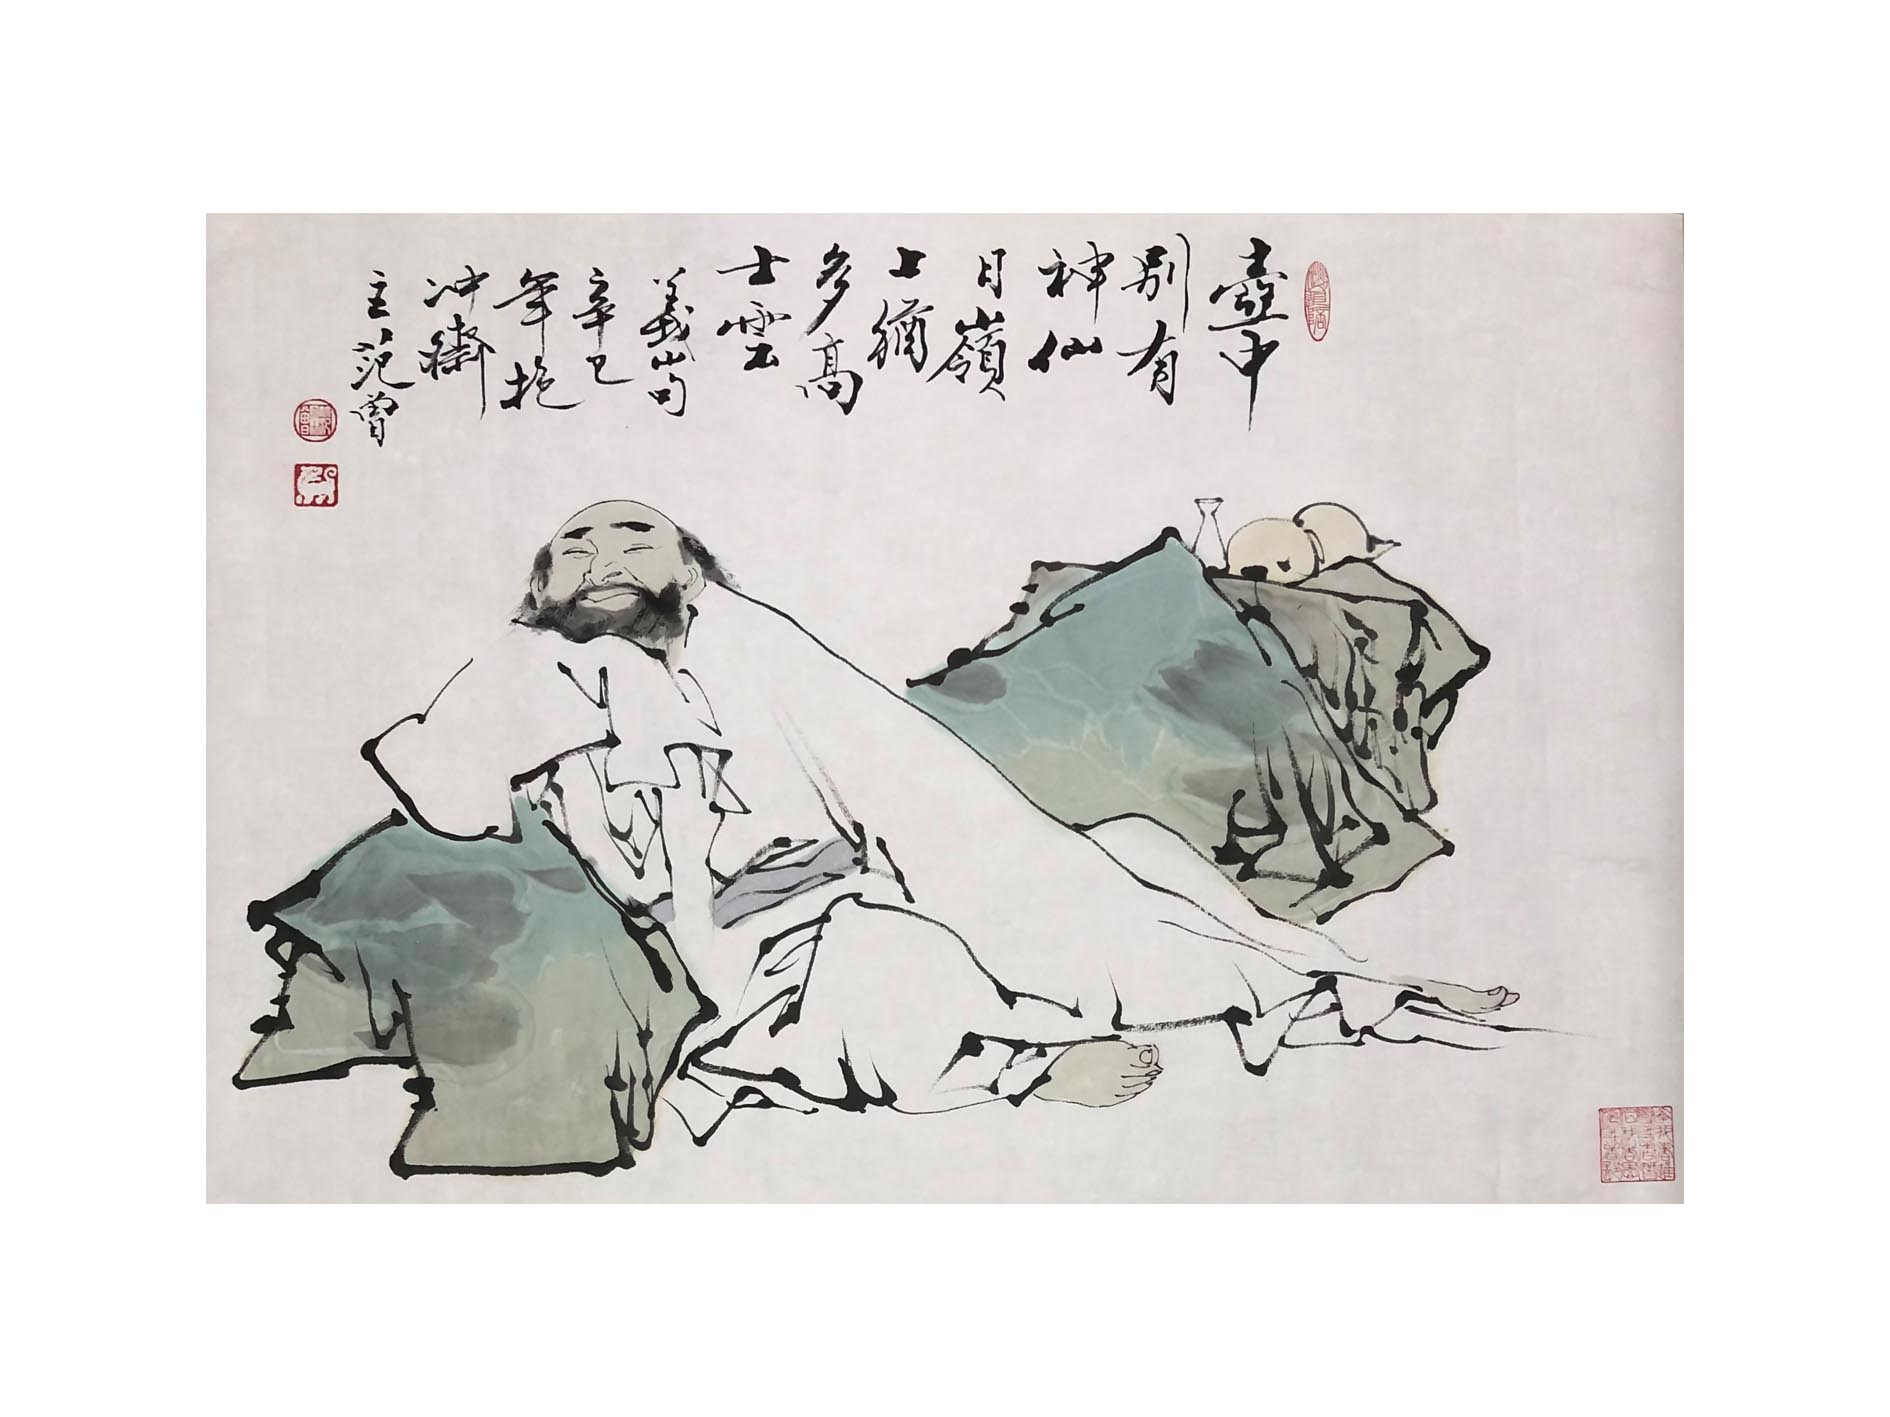 壺中
別有
神仙
日嶺
上猶
多高
士雲
義山句
辛巳
年抱
冲齋
主范曾